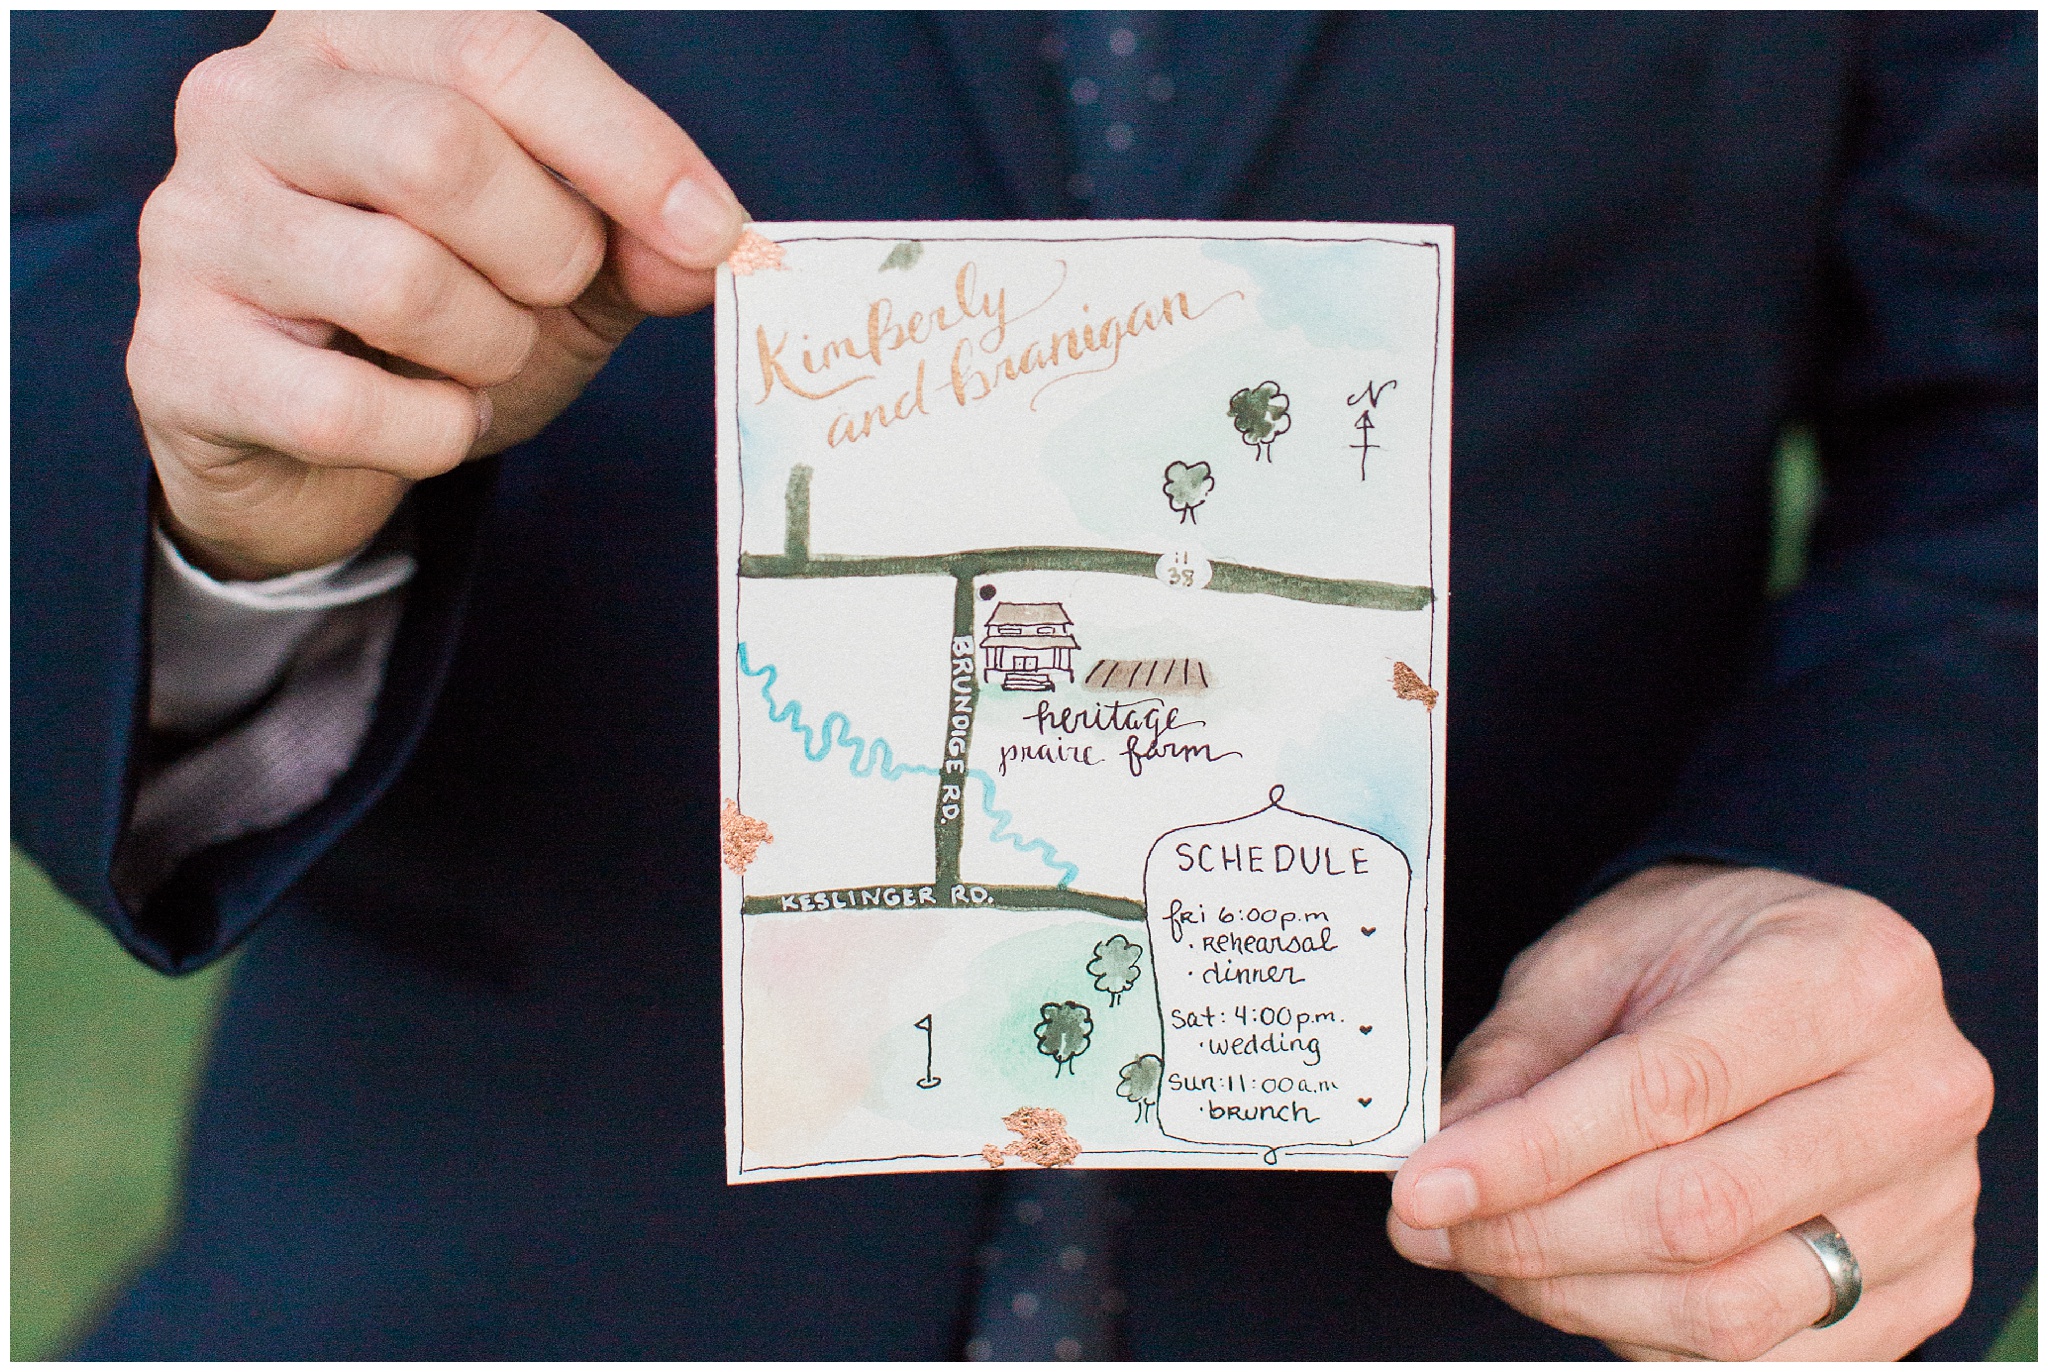 Kimberly
and Branigan
N
il
38
BRUNDIGE RD.
heritage
praire farm
KESLINGER RD.
SCHEDULE
fri 6:00p.m
· Rehearsal
· dinner
Sat: 4:00p.m.
· wedding
Sun: 11:00a.m
· brunch